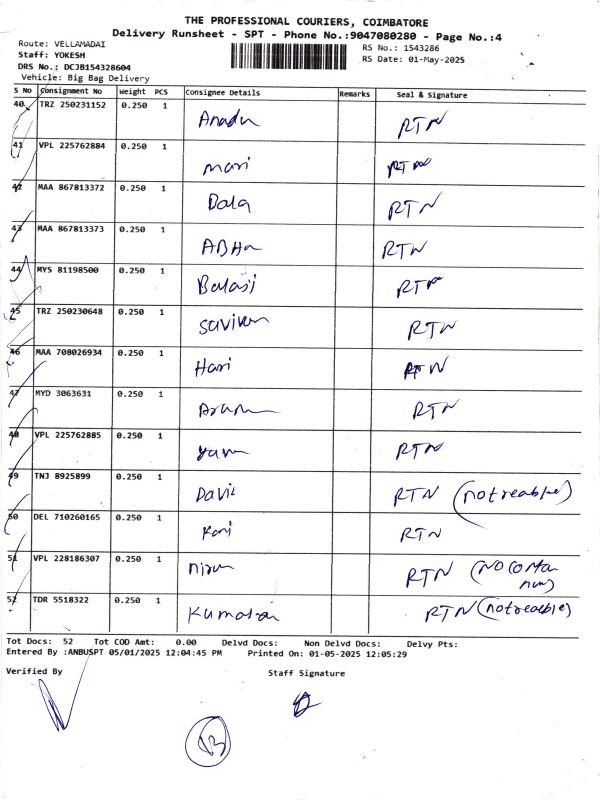 THE PROFESSIONAL COURIERS, COIMBATORE
Delivery Runsheet - SPT - Phone No.:9047080280 - Page No.:4
Route: VELLAMADAI
RS No.: 1543286
Staff: YOKESH
RS Date: 01-May-2025
DRS No.: DCJB154328604
Vehicle: Big Bag Delivery
S No Consignment No Weight PCS Consignee Details Remarks Seal & Signature
40 TRZ 250231152 0.250 1 RTN
41 VPL 225762884 0.250 1 mari RTN
42 MAA 867813372 0.250 1 Dala RTN
43 MAA 867813373 0.250 1 RTN
44 MYS 81198500 0.250 1 Balaji RTN
45 TRZ 250230648 0.250 1 RTN
46 MAA 708026934 0.250 1 Hari RTN
47 MYD 3063631 0.250 1 RTN
48 VPL 225762885 0.250 1 RTN
49 TNJ 8925899 0.250 1 RTN (not reable)
50 DEL 710260165 0.250 1 RTN
51 VPL 228186307 0.250 1 RTN (NO
52 TDR 5518322 0.250 1 Kumaran RTN (not reable)
Tot Docs: 52 Tot COD Amt: 0.00 Delvd Docs: Non Delvd Docs: Delvy Pts:
Entered By :ANBUSPT 05/01/2025 12:04:45 PM Printed On: 01-05-2025 12:05:29
Verified By Staff Signature
13